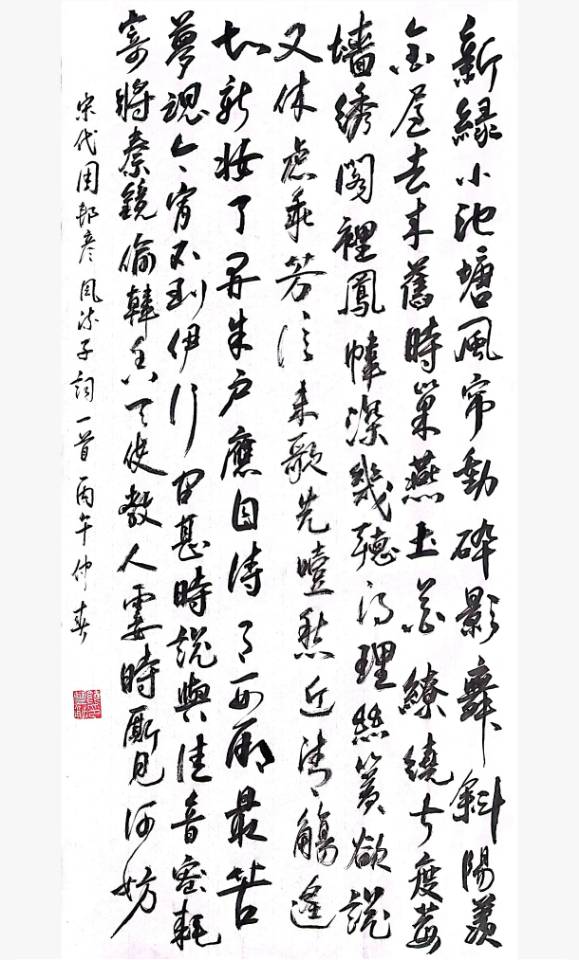 新緑小池塘風帘動碎影舞斜陽羡
金屋去来舊時巢燕土花繚繞前度莓
墻绣閣裡鳳幃深幾聽得理絲簧欲説
又休虑乖芳信未歌先噎愁近清觴遥
知新妆了開朱户應自待月西厢最苦
夢魂今宵不到伊行問甚時説與佳音密耗
寄將秦鏡偷韓香天便教人霎時厮見何妨
宋代周邦彦風流子詞一首丙午仲春